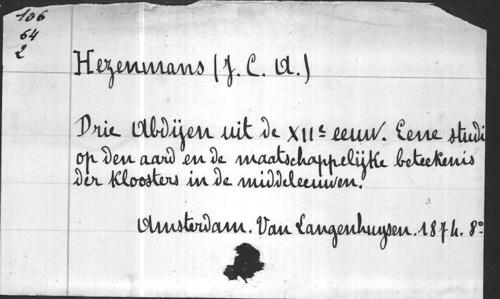 106
64
2
Hezenmans (J. C. A.)
Drie Abdijen uit de XIIe eeuw. Eene studi
op den aard en de maatschappelijke beteekenis
der kloosters in de middeleeuwen.
Amsterdam. Van Langenhuysen. 1874. 8o